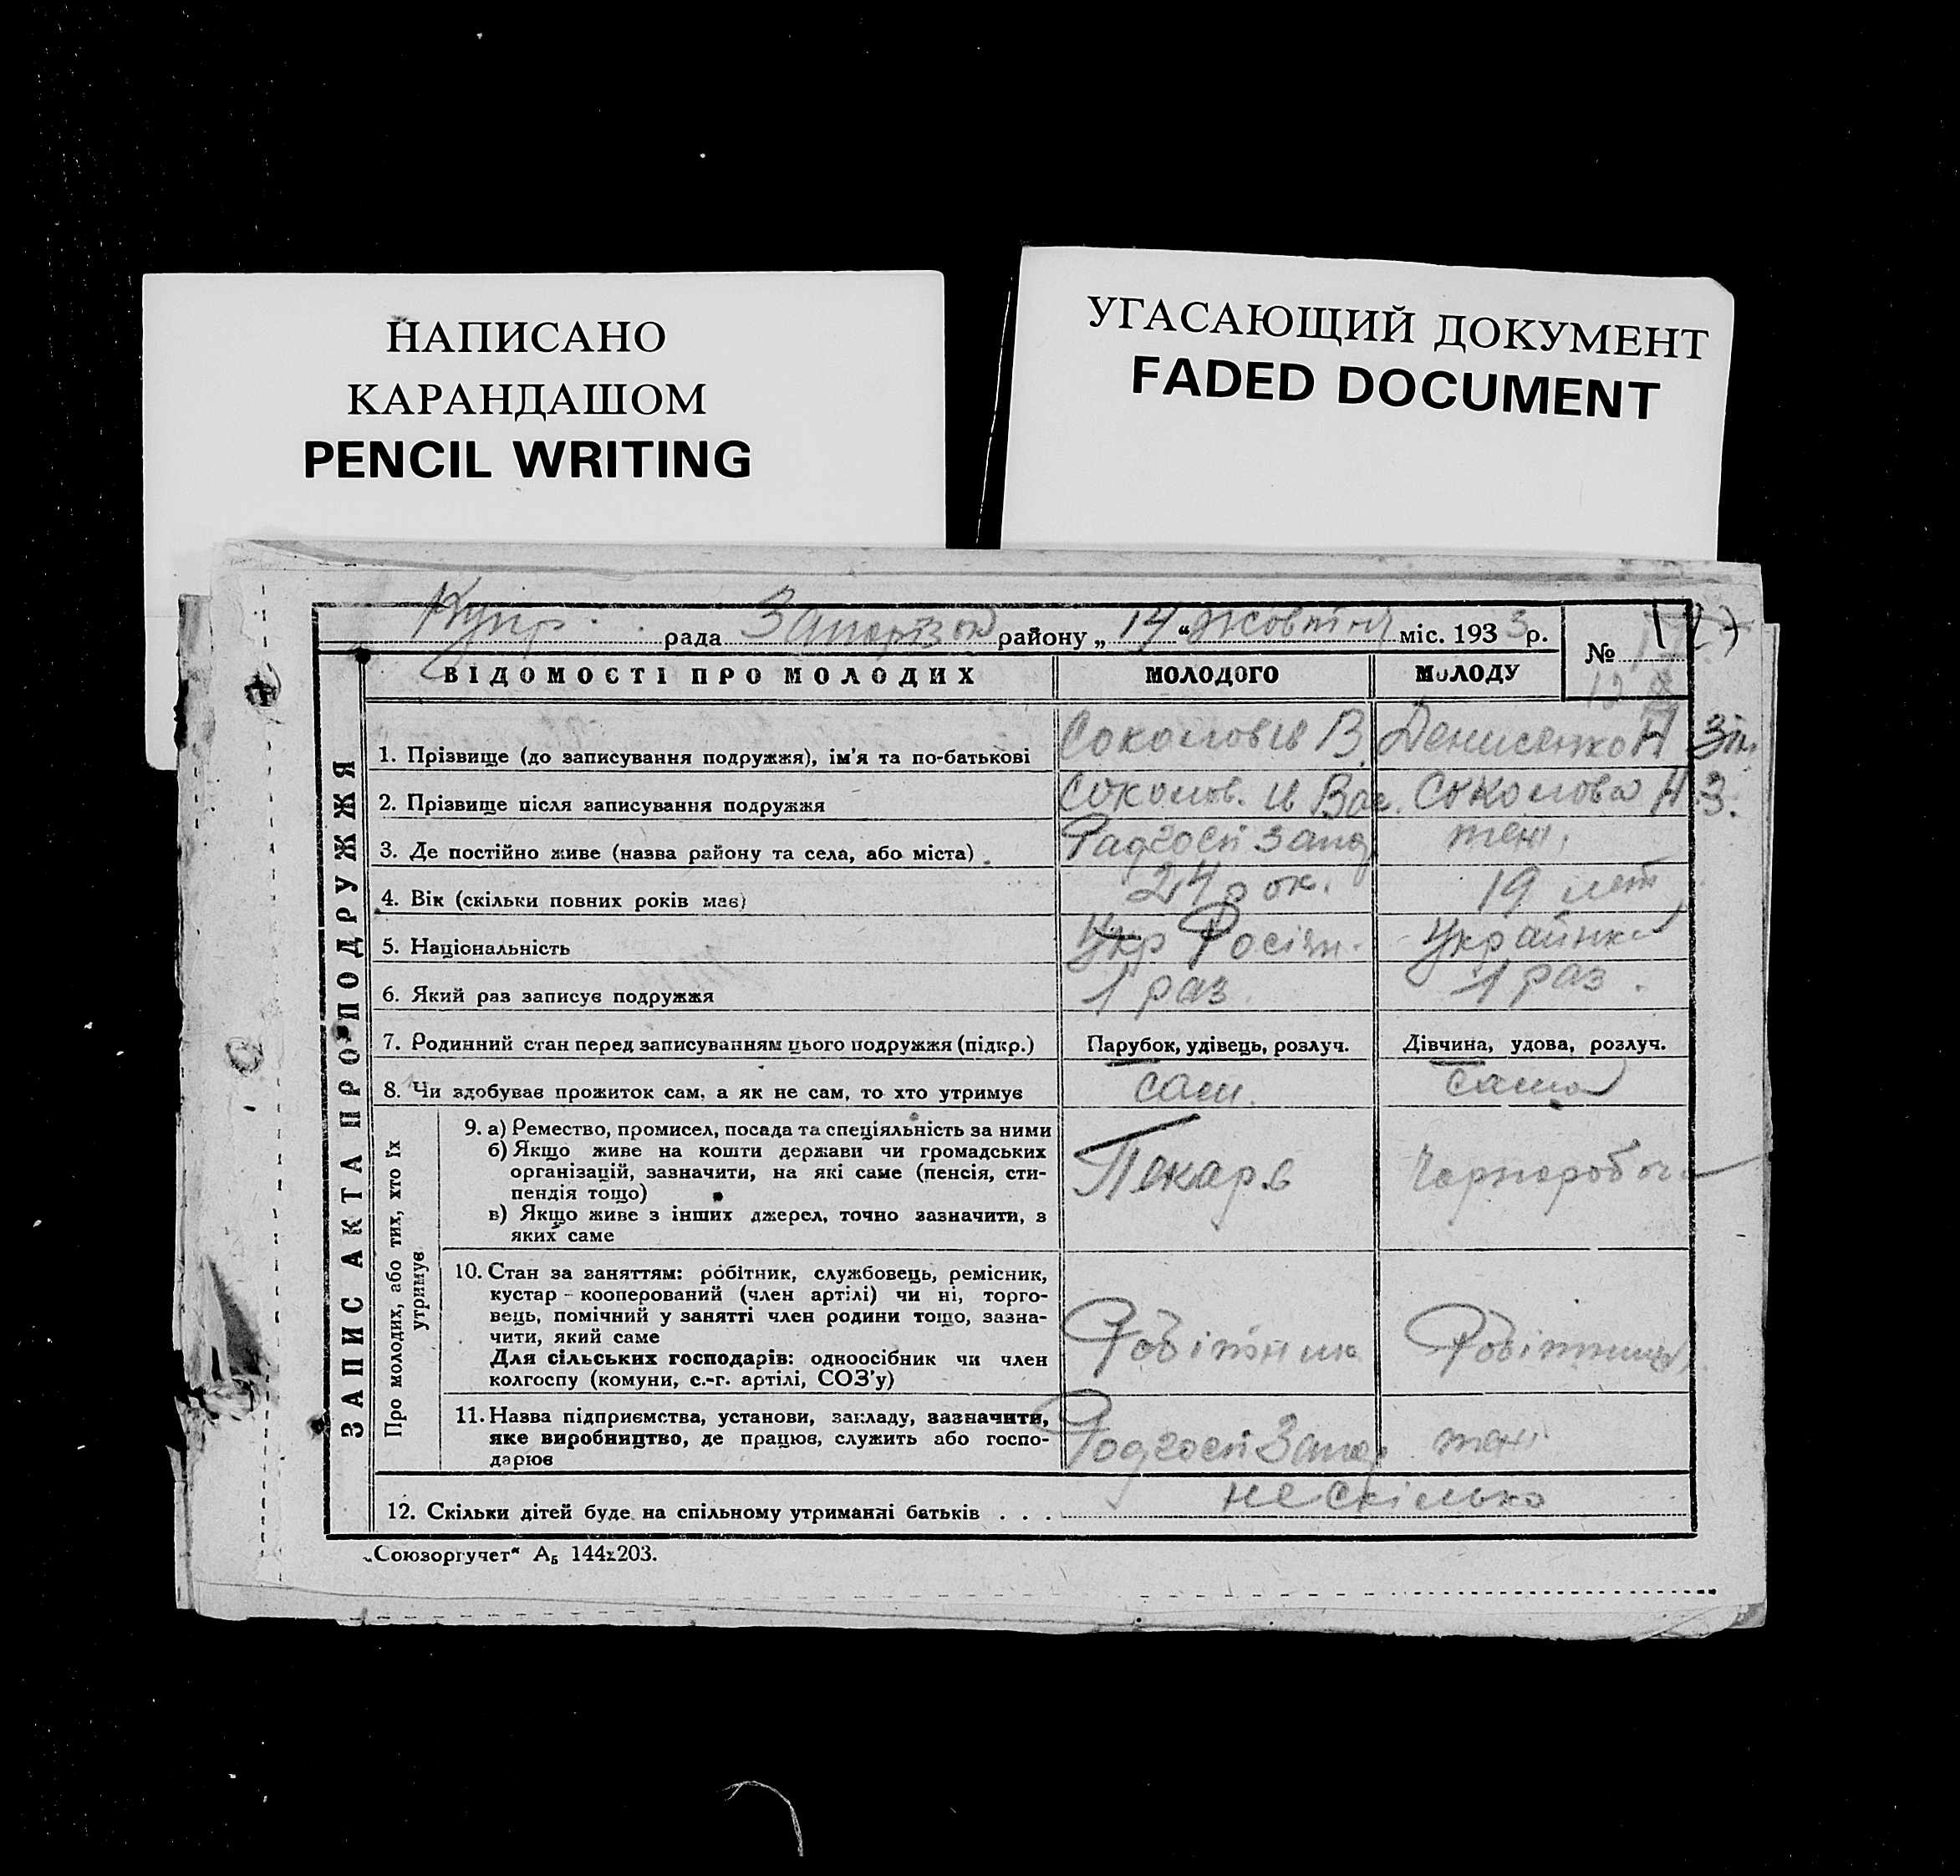 НАПИСАНО
КАРАНДАШОМ
PENCIL WRITING
УГАСАЮЩИЙ ДОКУМЕНТ
FADED DOCUMENT
рада району „ 14 “ жовтня міс. 193 3 р.
№
ЗАПИС АКТА ПРО ПОДРУЖЖЯ
ВІДОМОСТІ ПРО МОЛОДИХ МОЛОДОГО МОЛОДУ
1. Прізвище (до записування подружжя), ім'я та по-батькові Соколов И В. Денисенко Н Зп.
2. Прізвище після записування подружжя Соколов. И Вас. Соколова Н.З.
3. Де постійно живе (назва району та села, або міста) Радгосп Запор тені.
4. Вік (скільки повних років має) 24 рок. 19 лет
5. Національність Укр Росіян. Українка
6. Який раз записує подружжя 1 раз 1 раз.
7. Родинний стан перед записуванням цього подружжя (підкр.) Парубок, удівець, розлуч. Дівчина, удова, розлуч.
8. Чи здобуває прожиток сам, а як не сам, то хто утримує сам. сама
Про молодих, або тих, хто їх утримує
9. а) Ремество, промисел, посада та спеціяльність за ними
б) Якщо живе на кошти держави чи громадських
організацій, зазначити, на які саме (пенсія, сти-
пендія тощо)
в) Якщо живе з інших джерел, точно зазначити, з
яких саме
Пекарь Чорноробота
10. Стан за заняттям: робітник, службовець, ремісник,
кустар-кооперований (член артілі) чи ні, торго-
вець, помічний у занятті член родини тощо, зазна-
чити, який саме
Для сільських господарів: одноосібник чи член
колгоспу (комуни, с.-г. артілі, СОЗ'у)
Робітник Робітниця
11. Назва підприємства, установи, закладу, зазначити,
яке виробництво, де працює, служить або госпо-
дарює
Радгосп Запор тені
12. Скільки дітей буде на спільному утриманні батьків . . . нескілько
„Союзоргучет“ АБ 144х203.